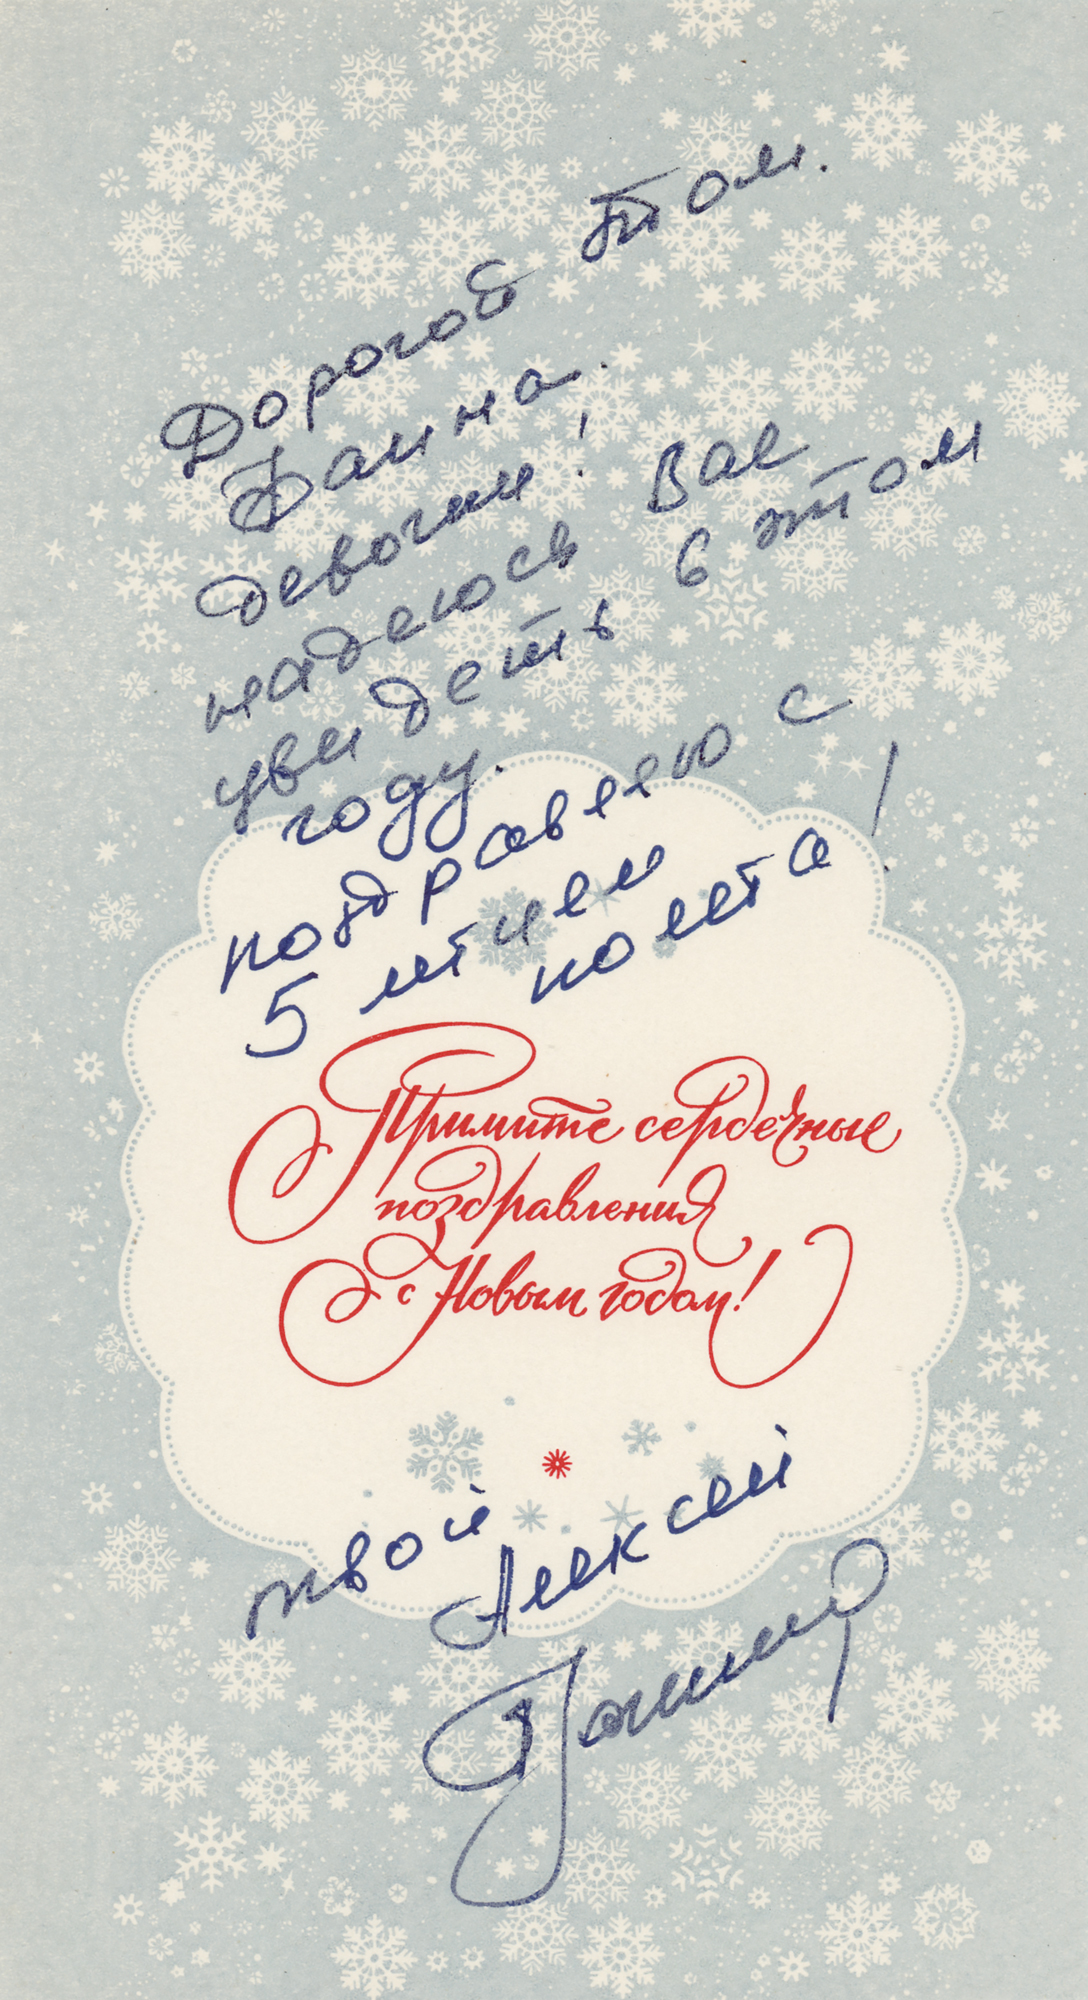 Дорогой Том.
Фаина.
девочки!
надеюсь Вас
увидеть в этом
году.
поздравляю с
5 летием
полета!
Примите сердечные
поздравления
с Новым годом!
твой
Алексей